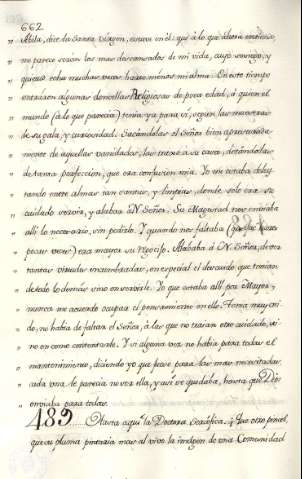 662
" Avila, dice la Santa Virgen, estuve en él: y á lo que ahora entiendo,
" me parece serán los mas descansados de mi vida, cuyo sosiego, y
" quietud echa muchas veces harto menos mi alma. En este tiempo
" entraron algunas doncellas Religiosas de poca edad, á quien el
" mundo (á lo que parecia) tenia ya para sí, segun las muestras
" de su gala, y curiosidad. Sacándolas el Señor bien apresurada-
" mente de aquellas vanidades, las traxo á su casa, dotándolas
" de tanta perfeccion, que era confusion mia. Yo me estaba delei-
" tando entre almas tan santas, y limpias, donde solo era su
" cuidado servir, y alabar á N. Señor. Su Magestad nos enviaba
" allí lo necesario, sin pedirlo. Y quando nos faltaba (que fue harto
" pocas veces) era mayor su regocijo. Alababa á N. Señor, de ver
" tantas virtudes encumbradas, en especial el descuido que tenian
" de todo lo demás, sino de servirle. Yo que estaba allí por Mayor,
" nunca me acuerdo ocupar el pensamiento en ello. Tenia muy creí-
" do, no habia de faltar el Señor, á las que no traían otro cuidado, si-
" no en como contentarle. Y si alguna vez no habia para todas el
" mantenimiento, diciendo yo que fuese para las mas necesitadas,
" cada una le parecia no ser ella, y así se quedaba, hasta que Dios
" enviaba para todas.
489 Hasta aquí la Doctora Seráfica. ¿Qué otro pincel,
que su pluma pintaría mas al vivo la imágen de una Comunidad